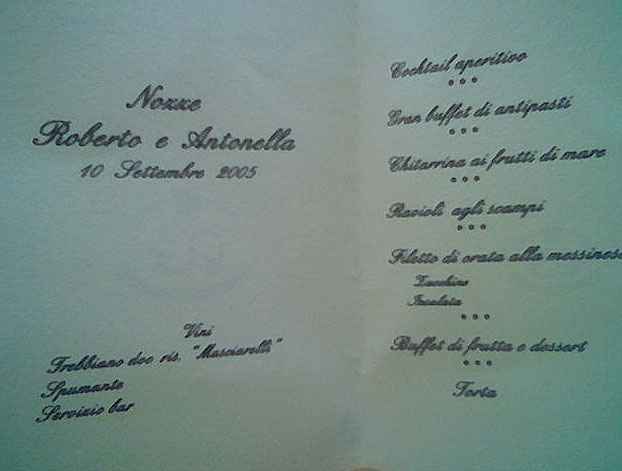 Nozze
Roberto e Antonella
10 Settembre 2005
Vini
Trebbiano doc ris. "Masciarelli"
Spumante
Servizio bar
Cocktail aperitivo
* * *
Gran buffet di antipasti
* * *
Chitarrina ai frutti di mare
* * *
Ravioli agli scampi
* * *
Filetto di orata alla messinese
Zucchine
Insalata
* * *
Buffet di frutta e dessert
* * *
Torta